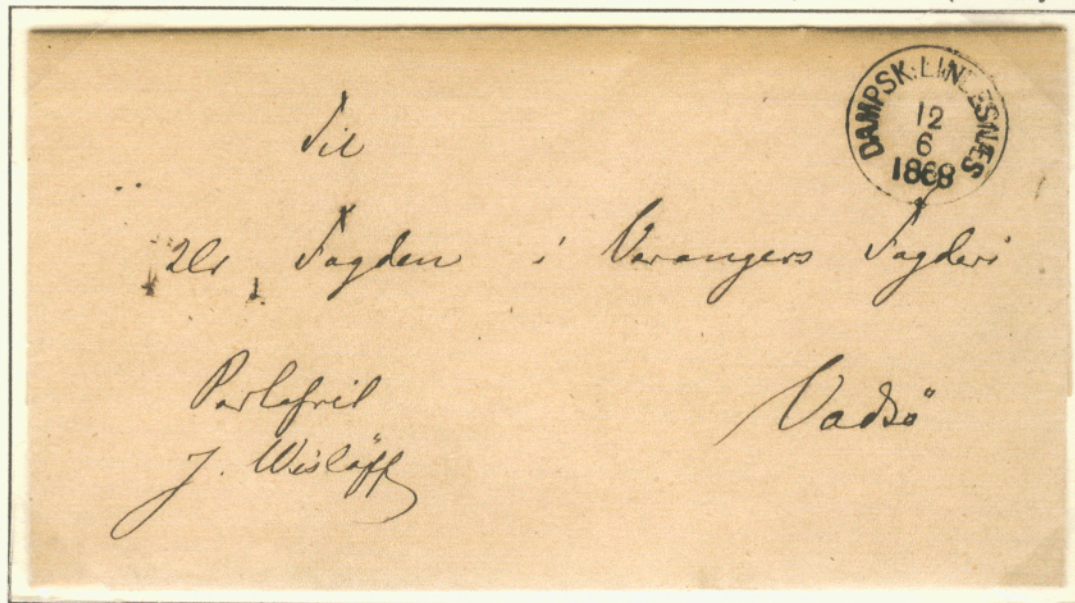 DAMPSK: LINDESNÆS
12
6
1868
Til
Hr Fogden i Varangers Fogderi
Portofrit
Vadsö
J. Wislöff